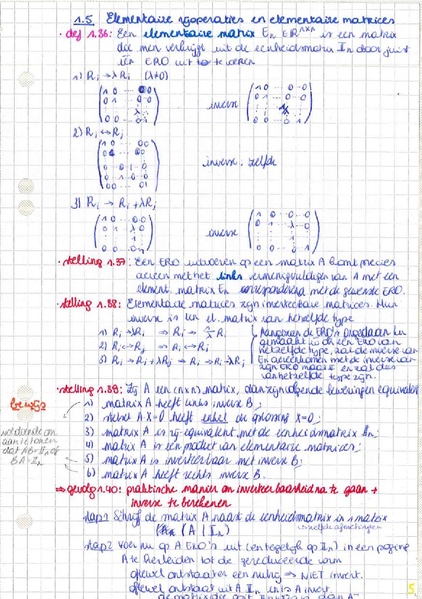 1.5 Elementaire rijoperaties en elementaire matrices
• def 1.36: Een elementaire matrix En ∈ ℝ^(n×n) is een matrix
die men verkrijgt uit de eenheidsmatrix In door juist
één ERO uit te voeren
1) Ri → λRi (λ≠0)
inverse
2) Ri ↔ Rj
inverse: zelfde
3) Ri → Ri + λRj
inverse
• stelling 1.37: Een ERO uitvoeren op een matrix A komt precies
overeen met het links vermenigvuldigen van A met een
element. matrix En corresponderend met de gewenste ERO.
• stelling 1.38: Elementaire matrices zijn inverteerbare matrices. Hun
inverse is een el. matrix van hetzelfde type
1) Ri → λRi ⇒ Ri → 1/λ Ri
2) Ri ↔ Rj ⇒ Ri ↔ Rj
3) Ri → Ri + λRj ⇒ Ri → Ri - λRj
Aangezien de ERO's ongedaan kan
gemaakt worden door een ERO van
hetzelfde type, zal de inverse van
En overeenkomen met de inverse van
zijn ERO
van hetzelfde type zijn.
• stelling 1.39: Zij A een (n×n) matrix, dan zijn volgende beweringen equivalent
1) matrix A heeft links inverse B;
2) stelsel A·X=0 heeft enkel de oplossing X=0;
3) matrix A is rij-equivalent met de eenheidsmatrix In;
4) matrix A is een product van elementaire matrices;
5) matrix A is inverteerbaar met inverse B;
6) matrix A heeft rechts inverse B.
voldoende om
aan te tonen
dat AB=In of
BA=In
⇒ gevolg 1.40: praktische manier om inverteerbaarheid na te gaan +
inverse te berekenen
stap 1 Schrijf de matrix A naast de eenheidsmatrix in 1 matrix
(A | In)
stap 2 Voer nu op A ERO's uit (en tegelijk op In) in een poging
A te herleiden tot de gereduceerde vorm
ofwel ontstaat er een nulrij ⇒ NIET invert.
ofwel ontstaat uit A In
5